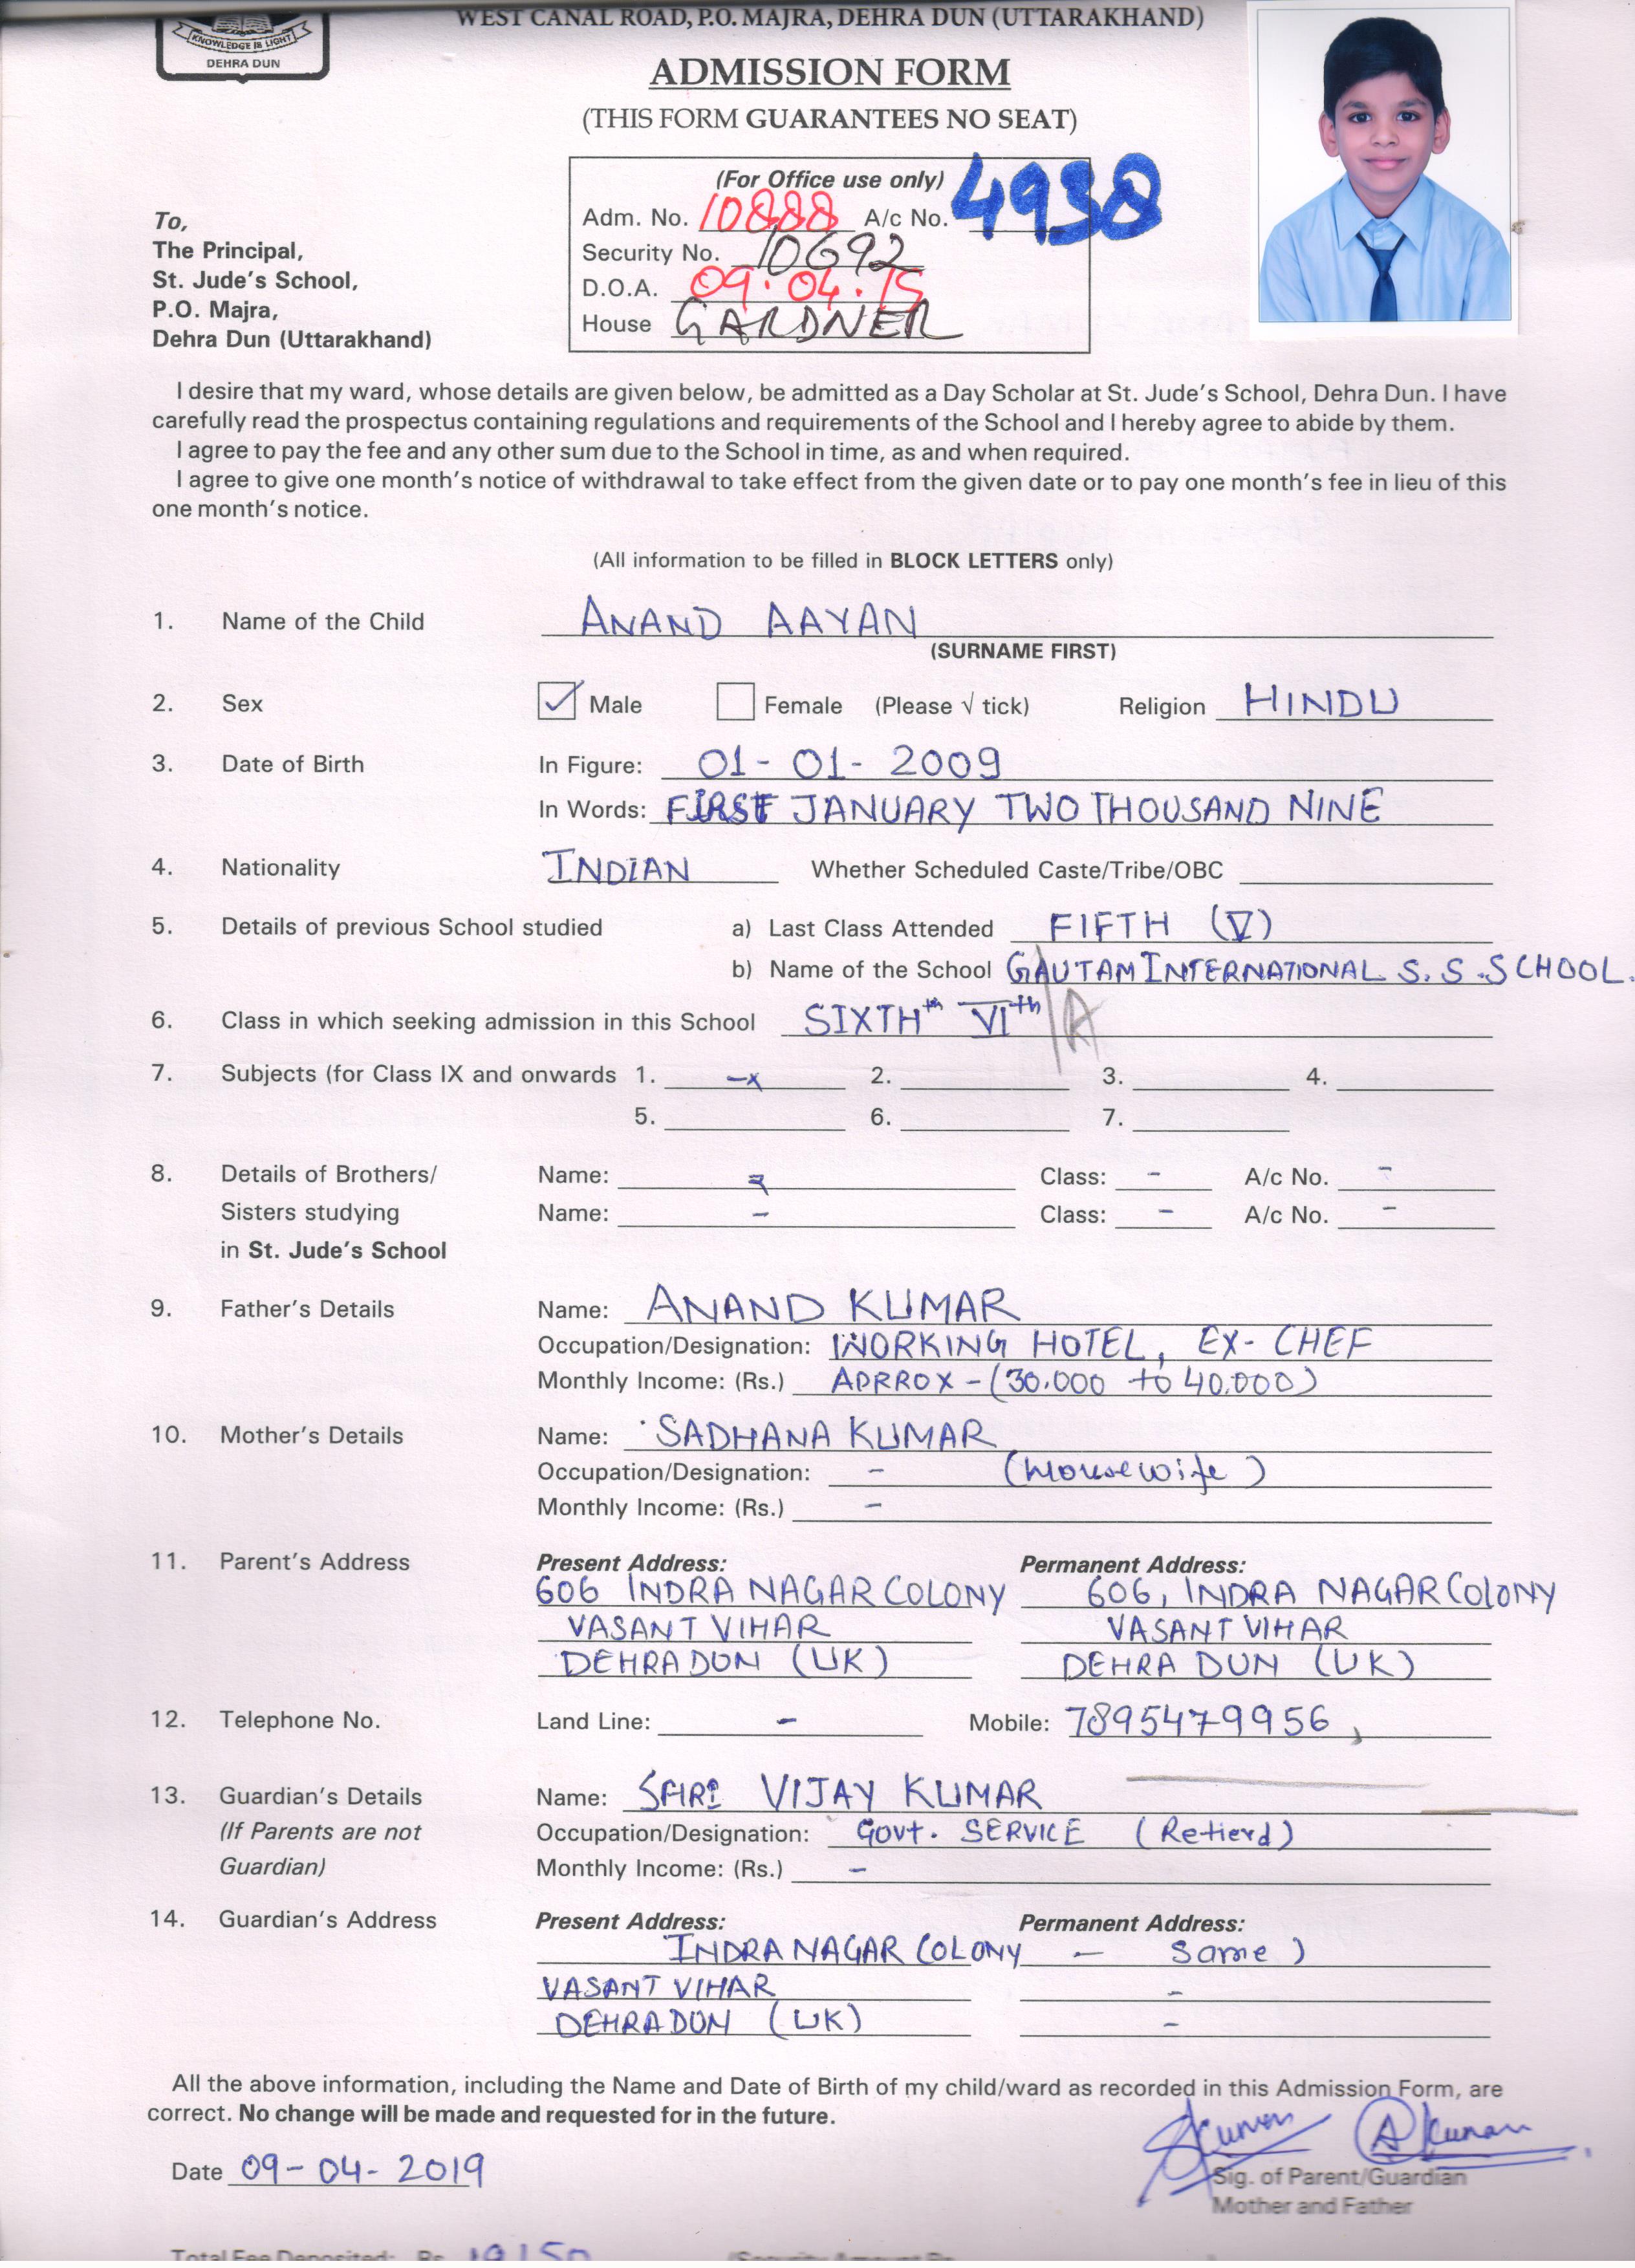 WEST CANAL ROAD, P.O. MAJRA, DEHRA DUN (UTTARAKHAND)
KNOWLEDGE IS LIGHT
DEHRA DUN
ADMISSION FORM
(THIS FORM GUARANTEES NO SEAT)
(For Office use only)
Adm. No. 10888 A/c No. 4938
Security No. 10692
D.O.A. 09.04.19
House GARDNER
To,
The Principal,
St. Jude's School,
P.O. Majra,
Dehra Dun (Uttarakhand)
I desire that my ward, whose details are given below, be admitted as a Day Scholar at St. Jude's School, Dehra Dun. I have
carefully read the prospectus containing regulations and requirements of the School and I hereby agree to abide by them.
I agree to pay the fee and any other sum due to the School in time, as and when required.
I agree to give one month's notice of withdrawal to take effect from the given date or to pay one month's fee in lieu of this
one month's notice.
(All information to be filled in BLOCK LETTERS only)
1. Name of the Child ANAND AAYAN
(SURNAME FIRST)
2. Sex Male Female (Please √ tick) Religion HINDU
3. Date of Birth In Figure: 01-01-2009
In Words: FIRST JANUARY TWO THOUSAND NINE
4. Nationality INDIAN Whether Scheduled Caste/Tribe/OBC
5. Details of previous School studied a) Last Class Attended FIFTH (V)
b) Name of the School GAUTAM INTERNATIONAL S.S.SCHOOL.
6. Class in which seeking admission in this School SIXTHth VIth/A
7. Subjects (for Class IX and onwards 1. -x 2. 3. 4.
5. 6. 7.
8. Details of Brothers/ Name: Class: - A/c No. -
Sisters studying Name: - Class: - A/c No. -
in St. Jude's School
9. Father's Details Name: ANAND KUMAR
Occupation/Designation: WORKING HOTEL, EX-CHEF
Monthly Income: (Rs.) APRROX-(30,000 to 40,000)
10. Mother's Details Name: SADHANA KUMAR
Occupation/Designation: - (Housewife)
Monthly Income: (Rs.) -
11. Parent's Address Present Address: Permanent Address:
606 INDRA NAGAR COLONY 606, INDRA NAGAR COlONY
VASANT VIHAR VASANT VIHAR
DEHRADUN (UK) DEHRA DUN (UK)
12. Telephone No. Land Line: - Mobile: 7895479956,
13. Guardian's Details Name: SHRI VIJAY KUMAR
(If Parents are not Occupation/Designation: Govt. SERVICE (Retierd)
Guardian) Monthly Income: (Rs.) -
14. Guardian's Address Present Address: Permanent Address:
INDRA NAGAR COLONY - Same)
VASANT VIHAR -
DEHRADUN (UK) -
All the above information, including the Name and Date of Birth of my child/ward as recorded in this Admission Form, are
correct. No change will be made and requested for in the future.
SKumar AKumar
Date 09-04-2019
Sig. of Parent/Guardian
Mother and Father
Total Fee Deposited: Rs. 19150 (Security Amount Rs.